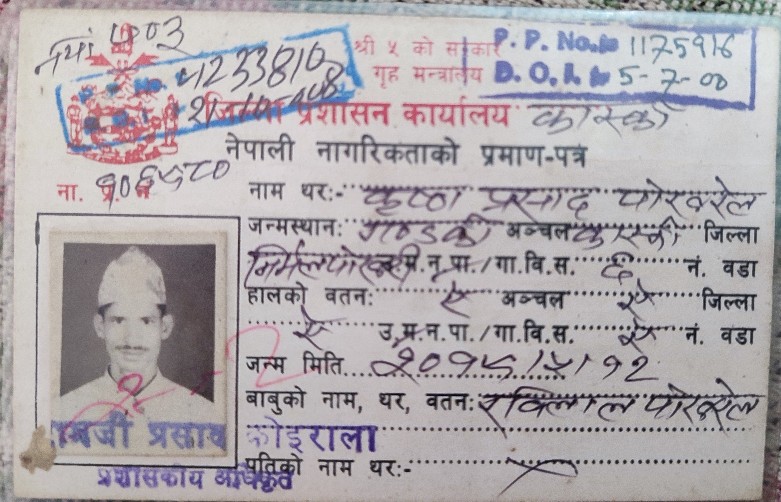 नयाँ ७०३
श्री ५ को सरकार
P. P. No. 1175916
4233810
गृह मन्त्रालय
D. O. I. 5-7-00
जिल्ला प्रशासन कार्यालय कास्की
नेपाली नागरिकताको प्रमाण-पत्र
ना. प्र. नं
नाम थर:- कृष्ण प्रसाद पोखरेल
जन्मस्थान: गण्डकी अञ्चल कास्की जिल्ला
निर्मलपोखरी उ.म.न.पा./गा.वि.स. ६ नं. वडा
हालको वतन: ऐ अञ्चल ऐ जिल्ला
ऐ उ.म.न.पा./गा.वि.स. ऐ नं. वडा
जन्म मिति २०१५/५/१२
बाबुको नाम, थर, वतन: रविलाल पोखरेल
प्रसाद कोइराला
पतिको नाम थर:- ×
प्रशासकीय अधिकृत